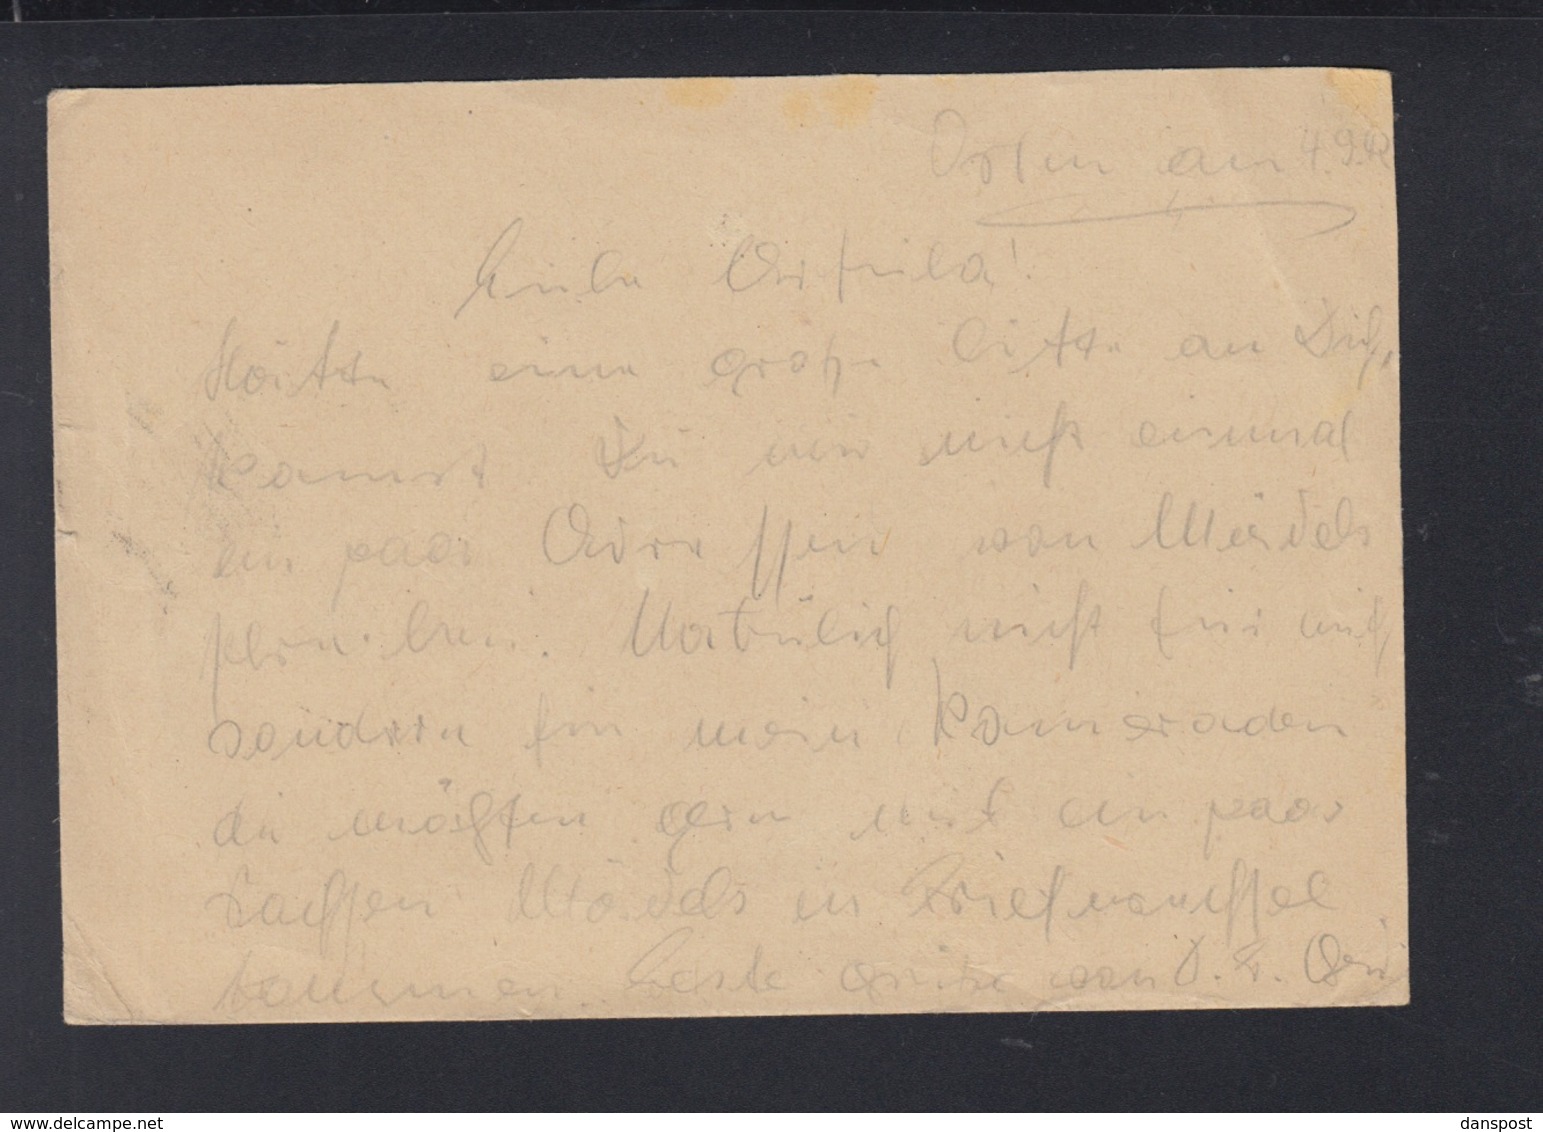 am 4.9.42
Liebe
Hätte eine große bitte an Dich,
kannst Du mir nicht einmal
ein paar Adressen von Mädels
schreiben. Natürlich nicht für mich
sondern für mein Kameraden
die möchten gern mit ein paar
Mädels in Briefwechsel
kommen. Beste grüße von D. Fr.
www.delcampe.net
danspost